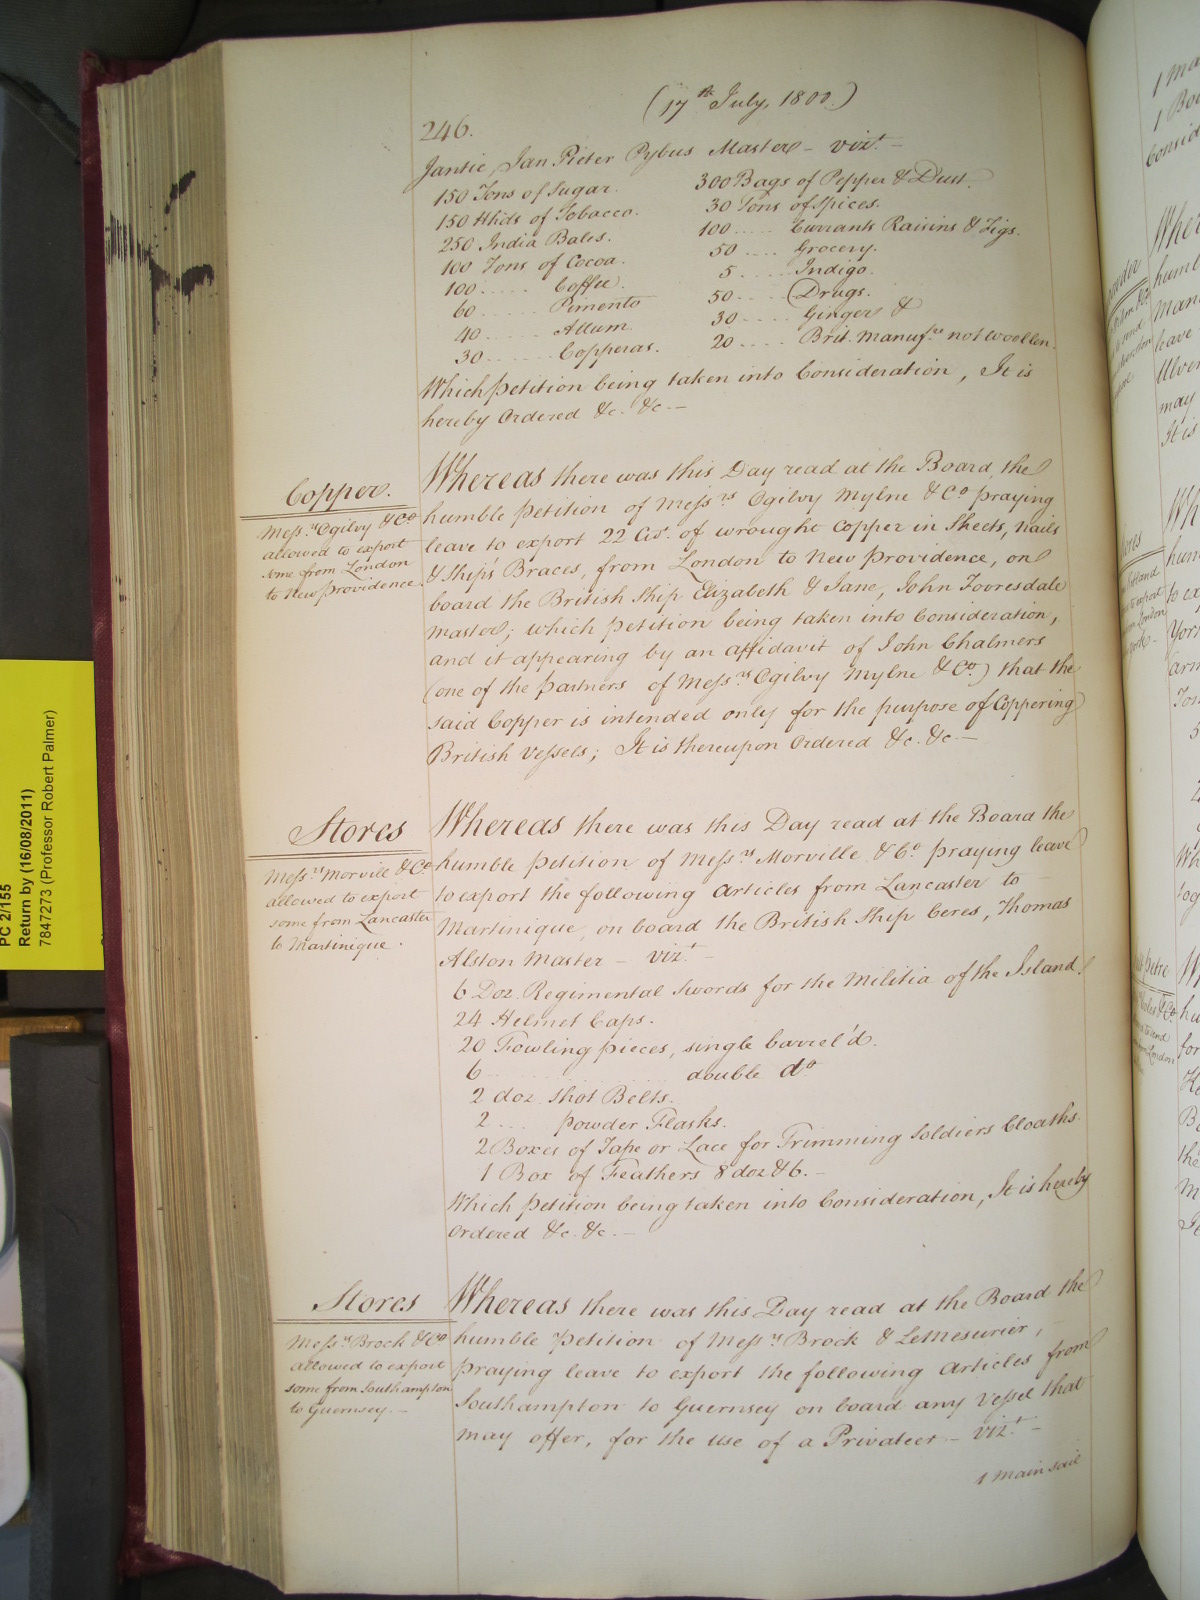 (17th July, 1800.)
246.
Jantie, Jan Pieter Pybus Master - vizt. -
150 Tons of Sugar.
150 Hhds of Tobacco.
250 India Bales.
100 Tons of Cocoa.
100 ..... Coffee.
60 ...... Pimento
40 ...... Allum.
30 ...... Copperas.
300 Bags of Pepper & Dust.
30 Tons of Spices.
100 ..... Currants Raisins & Figs.
50 .... Grocery.
5 ..... Indigo.
50 .... Drugs.
30 .... Ginger &
20 .... Brit. Manufres not woollen.
Which petition being taken into Consideration, It is
hereby Ordered &c. &c. -
Copper.
Messrs Ogilvy & Co
allowed to export
some from London
to New Providence.
Whereas there was this Day read at the Board the
humble petition of Messrs Ogilvy Mylne & Co praying
leave to export 22 Cwt. of wrought Copper in Sheets, nails
& Ship's Braces, from London to New Providence, on
board the British Ship Elizabeth & Jane, John Tooresdale
Master; which petition being taken into Consideration,
and it appearing by an affidavit of John Chalmers
(one of the partners of Messrs Ogilvy Mylne & Co.) that the
said Copper is intended only for the purpose of Coppering
British Vessels; It is thereupon Ordered &c. &c. -
Stores
Messrs Morvill & Co
allowed to export
some from Lancaster
to Martinique.
Whereas there was this Day read at the Board the
humble petition of Messrs Morville & Co praying leave
to export the following Articles from Lancaster to
Martinique, on board the British Ship Ceres, Thomas
Alston Master - vizt. -
6 Doz. Regimental Swords for the Militia of the Island.
24 Helmet Caps.
20 Fowling pieces, single barrel'd.
6 .................. double do
2 doz. Shot Belts.
2 ... powder Flasks.
2 Boxes of Tape or Lace for Trimming Soldiers Cloaths.
1 Box of Feathers 8 doz & 6. -
Which Petition being taken into Consideration, It is hereby
Ordered &c. &c. -
Stores
Messrs Brock & Co.
allowed to export
some from Southampton
to Guernsey. -
Whereas there was this Day read at the Board the
humble petition of Messrs Brock & LeMesurier,
praying leave to export the following Articles from
Southampton to Guernsey on board any Vessel that
may offer, for the use of a Privateer - vizt. -
1 Main sail
PC 2/155
Return by (16/08/2011)
7847273 (Professor Robert Palmer)